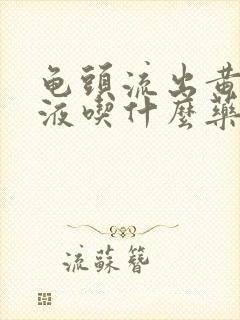 龟頭流出黄
液喫什麼藥
流蘇簪